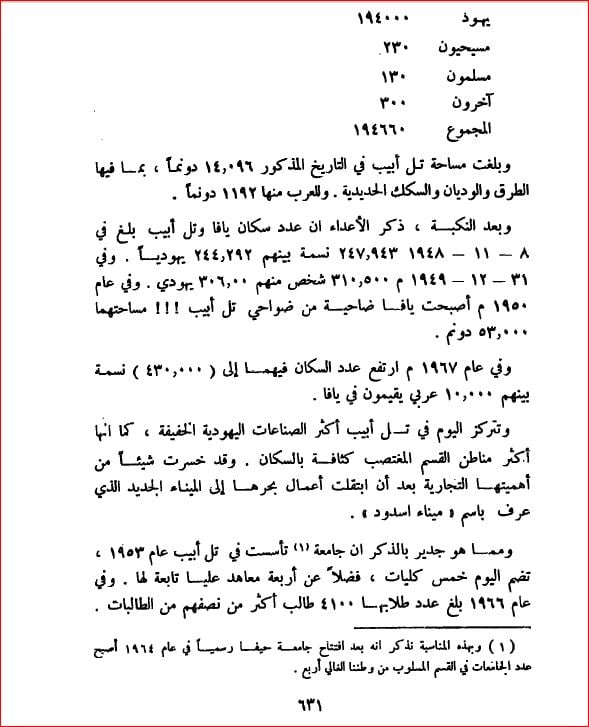 يهوذ ١٩٤٠٠٠
مسيحيون ٢٣٠
مسلمون ١٣٠
آخرون ٣٠٠
المجموع ١٩٤٦٦٠
وبلغت مساحة تل أبيب في التاريخ المذكور ١٤,٠٩٦ دونماً ، بما فيها
الطرق والوديان والسكك الحديدية . وللعرب منها ١١٩٢ دونماً .
وبعد النكبة ، ذكر الأعداء ان عدد سكان يافا وتل أبيب بلغ في
٨ – ١١ – ١٩٤٨ ٢٤٧,٩٤٣ نسمة بينهم ٢٤٤,٢٩٢ يهودياً . وفي
٣١ – ١٢ – ١٩٤٩ م ٣١٠,٥٠٠ شخص منهم ٣٠٦,٠٠ يهودي . وفي عام
١٩٥٠ م أصبحت يافا ضاحية من ضواحي تل أبيب !!! مساحتهما
٥٣,٠٠٠ دونم .
وفي عام ١٩٦٧ م ارتفع عدد السكان فيهما إلى ( ٤٣٠,٠٠٠ ) نسمة
بينهم ١٠,٠٠٠ عربي يقيمون في يافا .
وتتركز اليوم في تل أبيب أكثر الصناعات اليهودية الخفيفة ، كما انها
أكثر مناطن القسم المغتصب كثافة بالسكان . وقد خسرت شيئاً من
أهميتها التجارية بعد أن ابتقلت أعمال بحرها إلى الميناء الجديد الذي
عرف باسم « ميناء اسدود » .
ومما هو جدير بالذكر ان جامعة (١) تأسست في تل أبيب عام ١٩٥٣ ،
تضم اليوم خمس كليات ، فضلاً عن أربعة معاهد عليا تابعة لها . وفي
عام ١٩٦٦ بلغ عدد طلابها ٤١٠٠ طالب أكثر من نصفهم من الطالبات .
( ١ ) وبهذه المناسبة نذكر انه بعد افتتاح جامعة حيفا رسمياً في عام ١٩٦٤ أصبح
عدد الجامعات في القسم المسلوب من وطننا الغالي أربع .
٦٣١